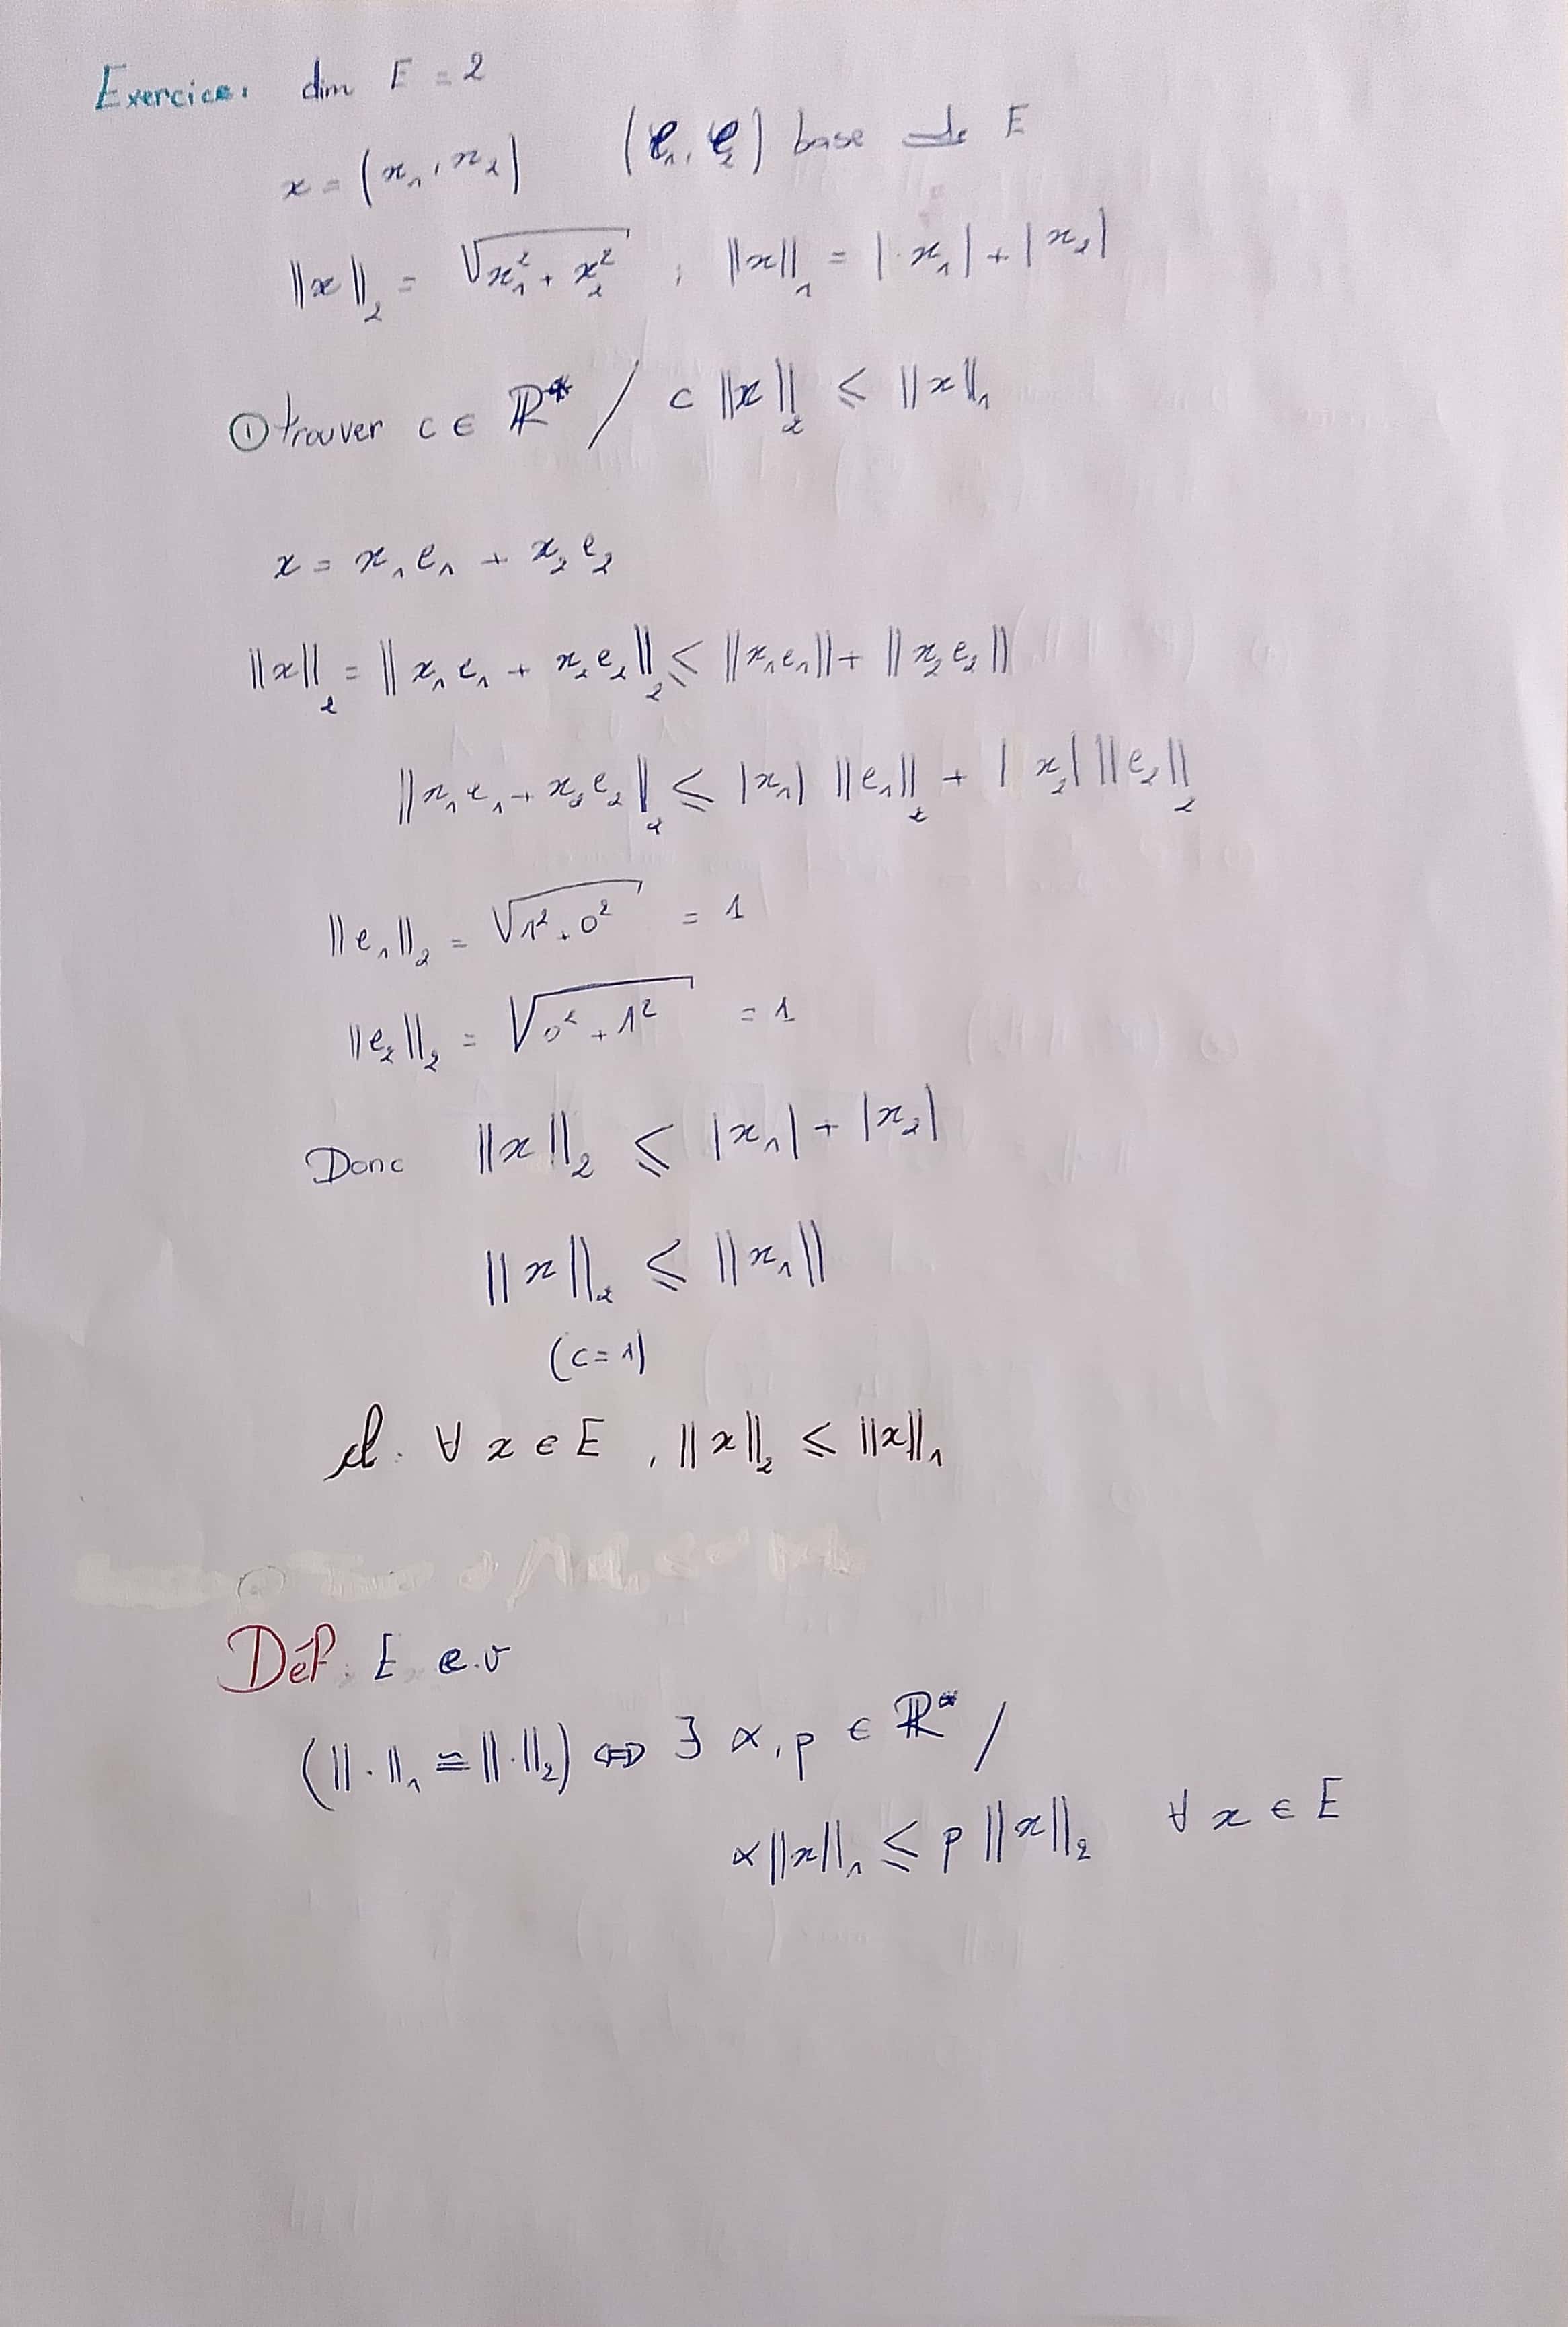 Exercice: dim E = 2
x = (x₁, x₂) (e₁, e₂) base de E
‖x‖₂ = √(x₁² + x₂²) ; ‖x‖₁ = |x₁| + |x₂|
① trouver c ∈ ℝ* / c ‖x‖₂ ≤ ‖x‖₁
x = x₁e₁ + x₂e₂
‖x‖₂ = ‖x₁e₁ + x₂e₂‖₂ ≤ ‖x₁e₁‖ + ‖x₂e₂‖
‖x₁e₁ + x₂e₂‖₂ ≤ |x₁| ‖e₁‖₂ + |x₂| ‖e₂‖₂
‖e₁‖₂ = √(1² + 0²) = 1
‖e₂‖₂ = √(0² + 1²) = 1
Donc ‖x‖₂ ≤ |x₁| + |x₂|
‖x‖₂ ≤ ‖x₁‖
(c = 1)
∀ x ∈ E, ‖x‖₂ ≤ ‖x‖₁
Déf: E e.v
(‖·‖₁ ≅ ‖·‖₂) ⇔ ∃ α, p ∈ ℝ* /
α‖x‖₁ ≤ p ‖x‖₂ ∀ x ∈ E